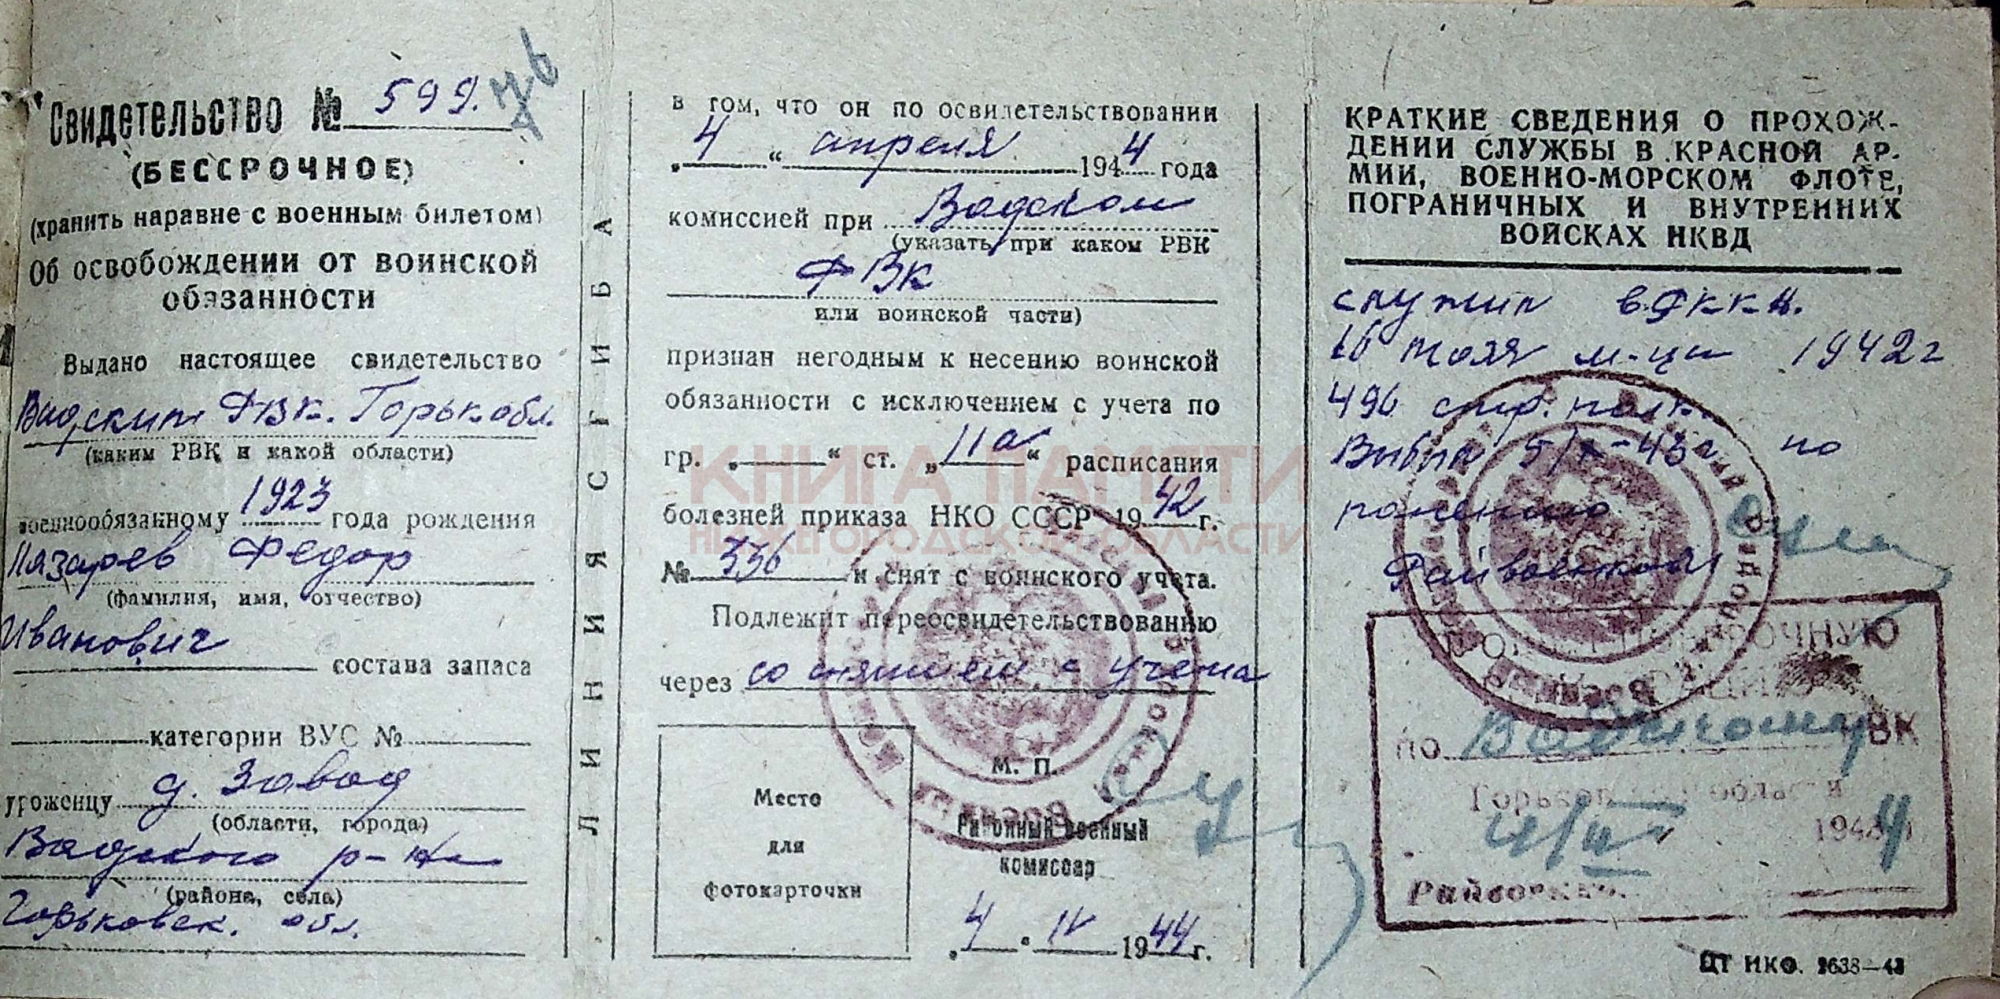 Свидетельство № 599.
76
(БЕССРОЧНОЕ)
(хранить наравне с военным билетом)
Об освобождении от воинской
обязанности
Выдано настоящее свидетельство
Вадским РВК. Горьк обл.
(каким РВК и какой области)
военнообязанному 1923 года рождения
Лазарев Федор
(фамилия, имя, отчество)
Иванович состава запаса
категории ВУС №
уроженцу д. Завод
(области, города)
Вадского р-на
(района, села)
Горьковск. обл.
ЛИНИЯ СГИБА
в том, что он по освидетельствовании
„4“ апреля 1944 года
комиссией при Вадском
(указать при каком РВК
РВК
или воинской части)
признан негодным к несению воинской
обязанности с исключением с учета по
гр. „ “ ст. „11а“ расписания
болезней приказа НКО СССР 1942 г.
№ 336 и снят с воинского учета.
Подлежит переосвидетельствованию
через со снятием с учета
М. П.
Место
для
фотокарточки
Районный военный
комиссар
„4“ IV 1944 г.
КРАТКИЕ СВЕДЕНИЯ О ПРОХОЖ-
ДЕНИИ СЛУЖБЫ В КРАСНОЙ АР-
МИИ, ВОЕННО-МОРСКОМ ФЛОТЕ,
ПОГРАНИЧНЫХ И ВНУТРЕННИХ
ВОЙСКАХ НКВД
служил в РККА.
1942 г
496 стр. полк.
Выбыл по
ранению
Райвоенком
ПО Вадскому РВК
Горьковской области
1944
Райвоенком.
ЦТ НКО. 2638—43
КНИГА ПАМЯТИ
НИЖЕГОРОДСКОЙ ОБЛАСТИ